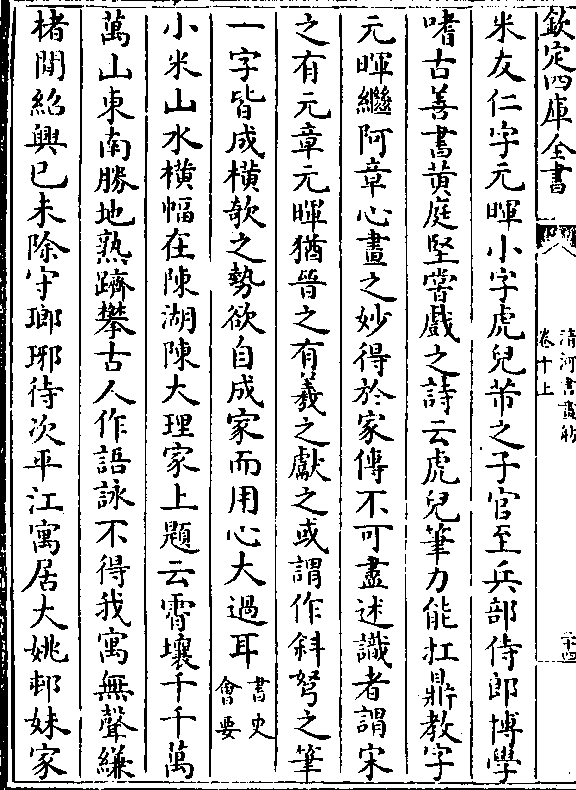 欽定四庫全書
清河書畫舫
卷十上
二十四
米友仁字元暉小字虎兒芾之子官至兵部侍郎博學
嗜古善書黄庭堅嘗戲之詩云虎兒筆力能扛鼎教字
元暉繼阿章心畫之妙得於家傳不可盡述識者謂宋
之有元章元暉猶晉之有羲之獻之或謂作斜弩之筆
一字皆成横欹之勢欲自成家而用心大過耳書史會要
小米山水横幅在陳湖陳大理家上題云霄壤千千萬
萬山東南勝地熟躋攀古人作語詠不得我寓無聲縑
楮閒紹興已未除守瑯琊待次平江寓居大姚邨妹家